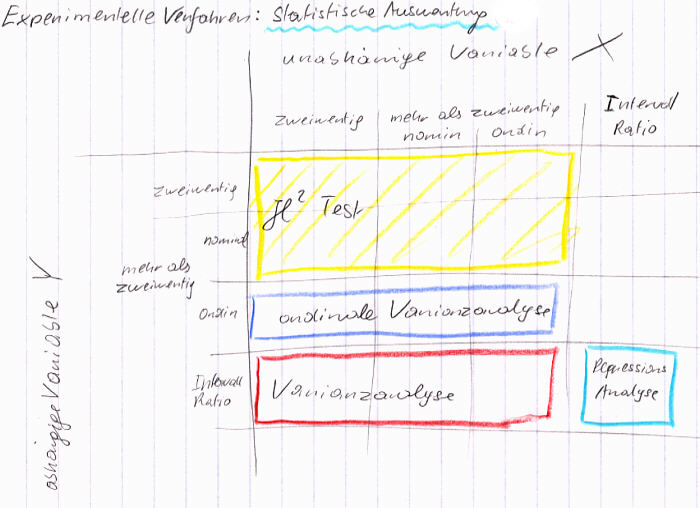 Experimentelle Verfahren: Statistische Auswertung
unabhänige Variable X
zweiwertig
mehr als zweiwertig
nomin
ordin
Intervall
Ratio
zweiwertig
χ² Test
nominal
mehr als
zweiwertig
Ordin
ordinale Varianzanalyse
Intervall
Ratio
Varianzanalyse
Regressions
Analyse
abhängige Variable Y